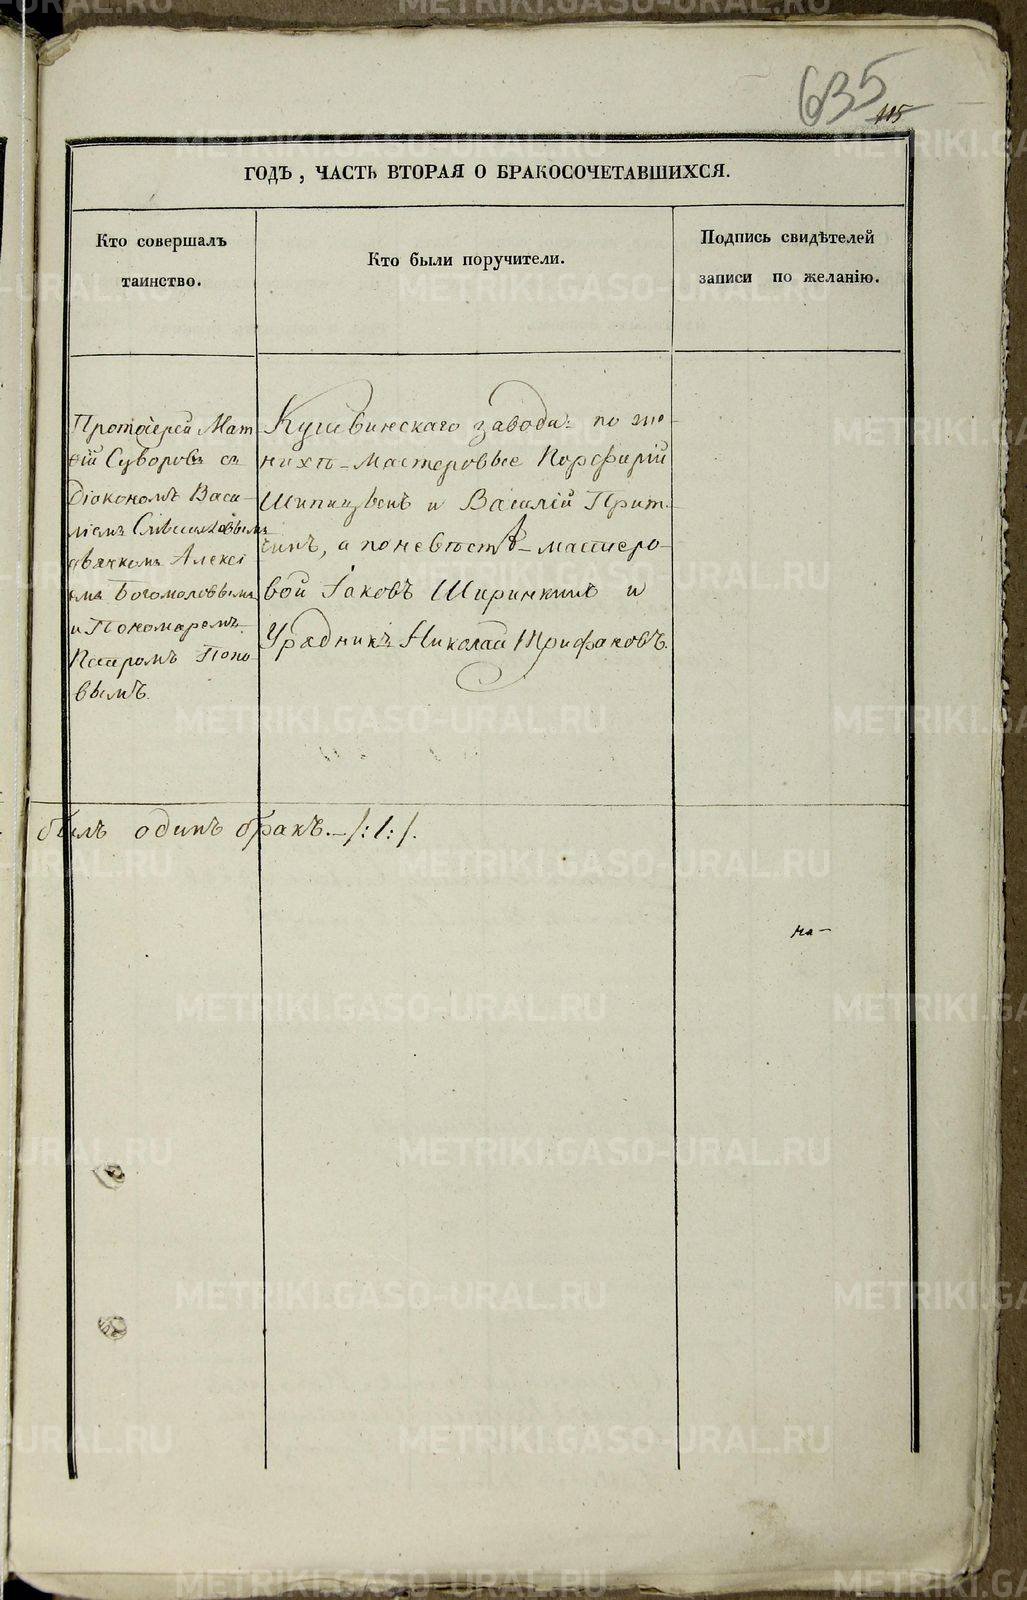 635
115
ГОДЪ, ЧАСТЬ ВТОРАЯ О БРАКОСОЧЕТАВШИХСЯ.
Кто совершалъ
таинство.
Кто были поручители.
Подпись свидѣтелей
записи по желанію.
Протоіерей Мат
ѳій Суворовъ съ
Діакономъ Васи-
ліемъ
дьячкомъ Алексі
емъ Богомоловымъ
и Пономаремъ
Петромъ Попо-
вымъ.
Кушвинскаго завода: по же-
нихѣ - Мастеровые Порфирій
Шипицынъ и Василій Прит-
чинъ, а по невѣстѣ - мастеро-
вой Іаковъ Ширинкинъ и
Урядникъ Николай Трифановъ.
былъ одинъ бракъ. - /:1:/.
на-
METRIKI.GASO-URAL.RU